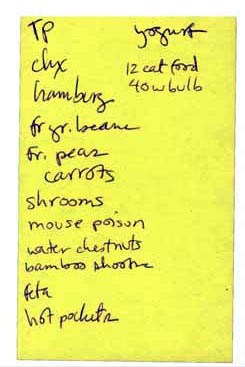 TP
chx
hamburg
fr gr. beans
fr. peas
carrots
shrooms
mouse poison
water chestnuts
bamboo shoots
feta
hot pockets
yogurt
12 cat food
40w bulb